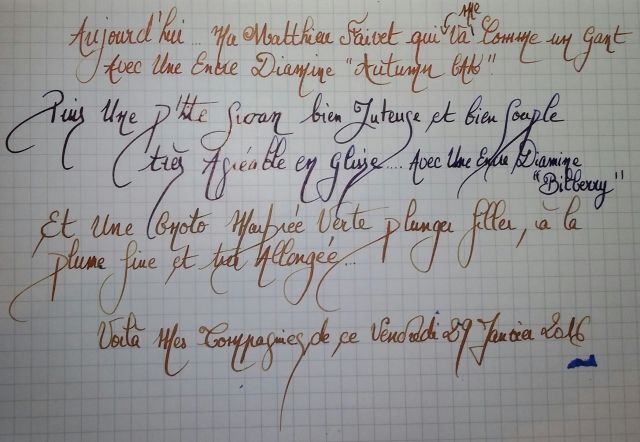 Aujourd'hui... Ma Matthieu Faivet qui me va comme un Gant
Avec Une Encre Diamine "Autumn OAK".
Puis Une p'tite Swan bien Juteuse et bien souple
très Agréable en glisse.... Avec Une Encre Diamine
"Bilberry"
Et Une Onoto Marbrée Verte plunger filler, à la
plume fine et très Allongée...
Voilà Mes Compagnes de ce Vendredi 29 Janvier 2016